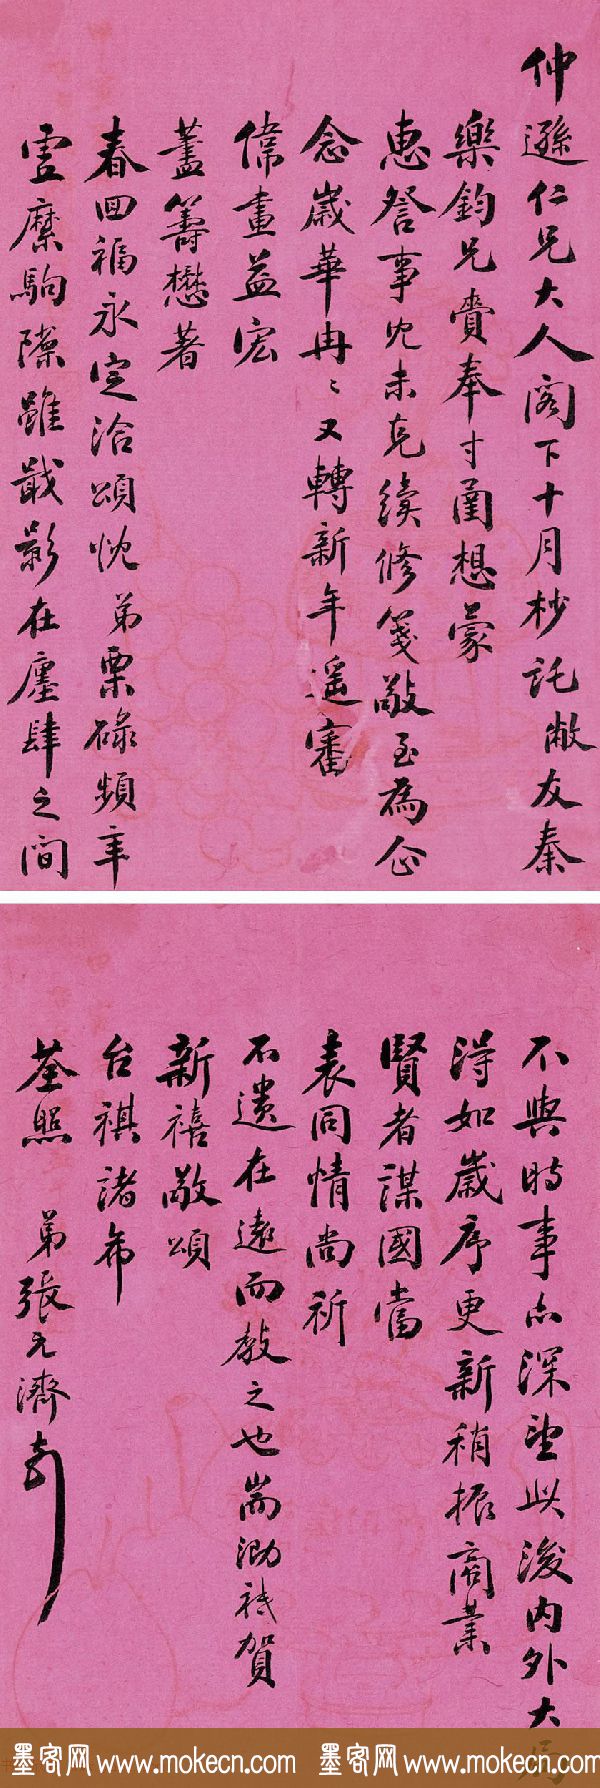 仲遜仁兄大人閣下十月杪託敝友秦
樂鈞兄賫奉寸函想蒙
惠詧事冗未克續修箋敬至為企
念歲華冉〻又轉新年遥審
偉畫益宏
藎籌懋著
春回福永定洽頌忱弟栗碌頻年
壹縻駒隙雖戢影在廛肆之間
不與時事亦深望此後内外大局
得如歲序更新稍振商業
賢者謀國當
表同情尚祈
不遺在遠而教之也耑泐祗賀
新禧敬頌
台祺諸希
荃照 弟張元濟頓
墨客网 www.mokecn.com 墨客网 www.mokecn.com